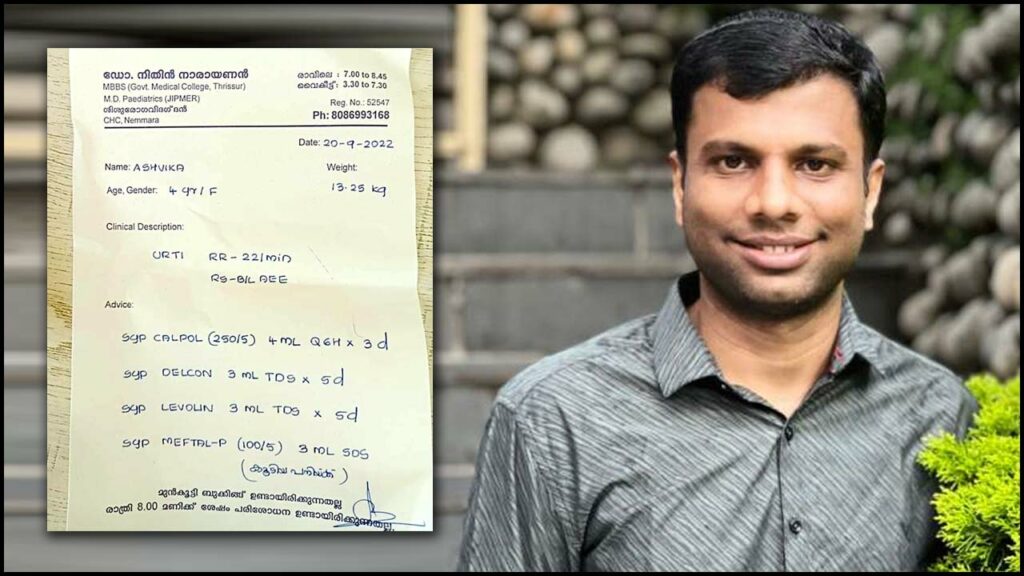 ഡോ. നിതിൻ നാരായണൻ
MBBS (Govt. Medical College, Thrissur)
M.D. Paediatrics (JIPMER)
ശിശുരോഗവിദഗ്ദൻ
CHC, Nemmara
രാവിലെ : 7.00 to 8.45
വൈകീട്ട് : 3.30 to 7.30
Reg. No.: 52547
Ph: 8086993168
Date: 20-9-2022
Name: ASHVIKA
Weight:
Age, Gender: 4 yr/F
13.25 kg
Clinical Description:
URTI RR-22/min
RS-B/L AEE
Advice:
Syp CALPOL (250/5) 4 ML Q6H x 3 d
Syp DELCON 3 ML TDS x 5d
Syp LEVOLIN 3 ML TDS x 5d
Syp MEFTAL-P (100/5) 3 ML SOS
(കൂടിയ പനിയ്ക്ക്)
മുൻകൂട്ടി ബുക്കിങ്ങ് ഉണ്ടായിരിക്കുന്നതല്ല
രാത്രി 8.00 മണിക്ക് ശേഷം പരിശോധന ഉണ്ടായിരിക്കുന്നതല്ല.